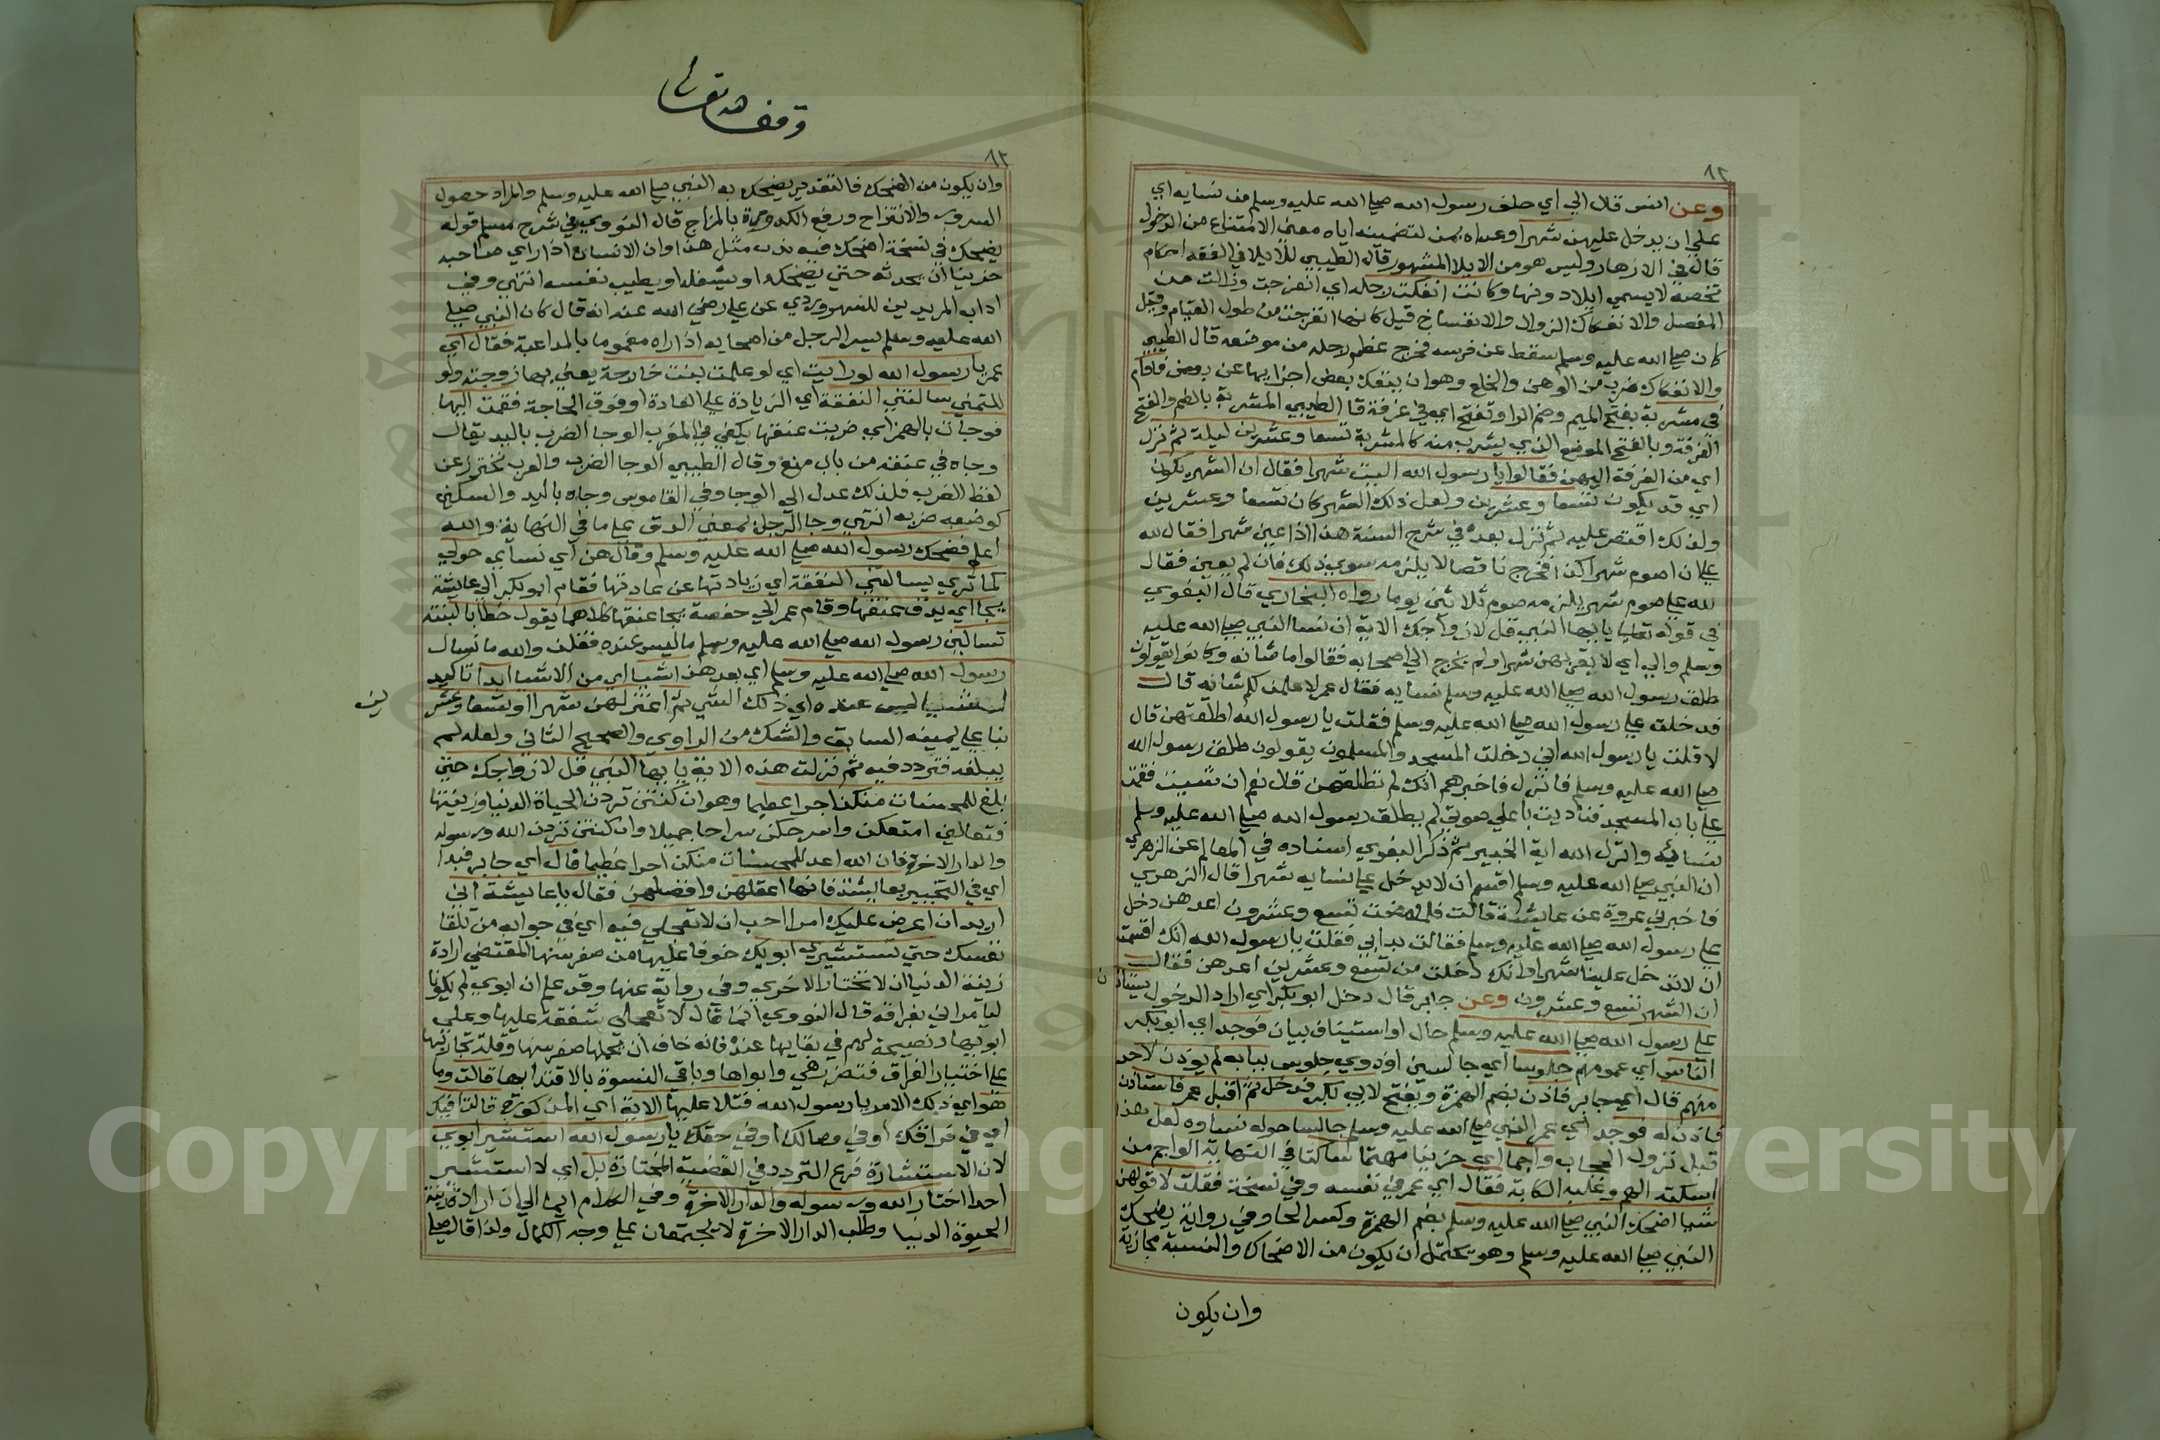 ٨٢
وعن انس قال الي اي حلف رسول الله صلي الله عليه وسلم من نسايه اي
علي ان يدخل عليهن شهرا وعداه بمن لتضمينه اياه معني الامتناع من الدخول
قال في الازهار وليس هو من الايلا المشهور قال الطيبي للايلا في الفقه احكام
تخصه لا يسمي ايلاء دونها وكانت انفكت رجله اي انفرجت وزالت من
المفصل والانفكاك الزوال والانفساخ قيل كانها انفرجت من طول القيام وقيل
كان صلي الله عليه وسلم سقط عن فرسه فخرج عظم رجله من موضعه قال الطيبي
والانفكاك ضرب من الوهن والخلع وهو ان ينفك بعض اجزايها عن بعض فاقام
في مشربة بفتح الميم وضم الرا وتفتح اي في غرفة قا الطيبي المشربة بالضم والفتح
الغرفة وبالفتح الموضع الذي يشرب منه كالمشربة تسعا وعشرين ليلة ثم نزل
اي من الغرفة اليهن فقالوا يا رسول الله اليت شهرا فقال ان الشهر يكون
اي قد يكون تسعا وعشرين ولعل ذلك الشهر كان تسعا وعشرين
ولذلك اقتصر عليه ثم نزل بعده في شرح السنة هذا اذا عين شهرا فقال لله
علي ان اصوم شهر كذا فخرج ناقصا لا يلزمه سوي ذلك فان لم يعين فقال
لله علي صوم شهر يلزمه صوم ثلاثين يوما رواه البخاري قال البغوي
في قوله تعالي يا ايها النبي قل لازواجك الاية ان نسا النبي صلي الله عليه
وسلم والي اي لا يقربهن شهرا ولم يخرج الي اصحابه فقالوا ما شانه وكانوا يقولون
طلق رسول الله صلي الله عليه وسلم نسايه فقال عمر لاعلمن لكم شانه قال
فدخلت علي رسول الله صلي الله عليه وسلم فقلت يا رسول الله اطلقتهن قال
لا قلت يا رسول الله اني دخلت المسجد والمسلمون يقولون طلق رسول الله
صلي الله عليه وسلم فانزل فاخبرهم انك لم تطلقهن قال نعم ان شيت فقمت
علي باب المسجد فناديت باعلي صوتي لم يطلق رسول الله صلي الله عليه وسلم
نسائه وانزل الله اية الخيير ثم ذكر البغوي اسناده في المعالم عن الزهري
ان النبي صلي الله عليه وسلم اقسم ان لا يدخل علي نسايه شهرا قال الزهري
فاخبرني عروة عن عايشة قالت فلما مضت تسع وعشرون اعدهن دخل
علي رسول الله صلي الله عليه وسلم فقالت بدا بي فقلت يا رسول الله انك اقسمت
ان لا تدخل علينا شهرا وانك دخلت من تسع وعشرين اعدهن فقال
ان الشهر تسع وعشرون وعن جابر قال دخل ابو بكر اي اراد الدخول يستاذن
علي رسول الله صلي الله عليه وسلم حال او استيناف بيان فوجد اي ابو بكر
الناس اي عمومهم جلوسا اي جالسين اوذوي جلوس ببابه لم يوذن لاحد
منهم قال اي جابر فاذن بضم الهمزة ويفتح لابي بكر فدخل ثم اقبل عمر فاستاذن
فاذن له فوجد اي عمر النبي صلي الله عليه وسلم جالسا حوله نساوه لعل هذا
قبل نزول الحجاب واجما اي حزينا مهتما ساكتا في النهاية الواجم من
اسكته الهم وغلبه الكابة فقال اي عمر في نفسه وفي نسخة فقلت لاقولن
شيا اضحك النبي صلي الله عليه وسلم بضم الهمزة وكسر الحا وفي رواية يضحك
النبي صلي الله عليه وسلم وهو يحتمل ان يكون من الاضحاك والنسبة مجازية
وان يكون
وقف لله تعالى
وان يكون من الضحك فالتقدير يضحك به النبي صلي الله عليه وسلم والمراد حصول
السرور والانشراح ورفع الكدورة بالمزاح قال النووي في شرح مسلم قوله
يضحك في نسخة اضحك فيه ندب مثل هذا وان الانسان اذا راي صاحبه
حزينا ان يحدثه حتي يضحكه او يشغله او يطيب نفسه انتهي وفي
اداب المريدين للسهروردي عن علي رضي الله عنه انه قال كان النبي صلي
الله عليه وسلم يسر الرجل من اصحابه اذا راه مغموما بالمداعبة فقال اي
عمر يا رسول الله لو رايت اي لو علمت بنت خارجة يعني بها زوجته ولو
للتمني سالتني النفقة اي الزيادة علي العادة او فوق الحاجة فقمت اليها
فوجات بالهمز اي ضربت عنقها بكفي في المغرب الوجا الضرب باليد يقال
وجاه في عنقه من باب منع وقال الطيبي الوجا الضرب والعرب تحترز عن
لفظ الضرب فلذلك عدل الي الوجا وفي القاموس وجاه باليد والسكين
كوضعه ضربه انتهي وجا الرجل بمعني الدق علي ما في النهاية والله
اعلم فضحك رسول الله صلي الله عليه وسلم وقال هن اي نسايي حولي
كما تري يسالنني النفقة اي زيادتها عن عادتها فقام ابو بكر الي عايشة
يجا اي يدق عنقها وقام عمر الي حفصة يجا عنقها كلاهما يقول خطابا لبنته
تسالين رسول الله صلي الله عليه وسلم ما ليس عنده فقلن والله ما نسال
رسول الله صلي الله عليه وسلم اي بعد هذا شيا اي من الاشيا ابدا تاكيد
ليس عنده اي ذلك الشي ثم اعتزلهن شهرا او تسعا وعشر
ين
بنا علي يمينه السابق والشك من الراوي والصحيح الثاني ولعله لم
يبلغه فتردد فيه ثم نزلت هذه الاية يا ايها النبي قل لازواجك حتي
بلغ للمحسنات منكن اجرا عظيما وهو ان كنتن تردن الحياة الدنيا وزينتها
فتعالين امتعكن واسرحكن سراحا جميلا وان كنتن تردن الله ورسوله
والدار الاخرة فان الله اعد للمحسنات منكن اجرا عظيما قال اي جابر فبدا
اي في التخيير بعايشة فانها اعقلهن وافضلهن فقال يا عايشة اني
اريد ان اعرض عليك امرا احب ان لا تعجلي فيه اي في جوابه من تلقا
نفسك حتي تستشيري ابويك خوفا عليها من صغر سنها المقتضي ارادة
زينة الدنيا ان لا تختار الاخري وفي رواية عنها وقد علم ان ابوي لم يكونا
ليامراني بفراقه قال النووي انما قال لا تعجلي شفقة عليها وعلي
ابويها ونصيحة لهم في بقايها عنده فانه خاف ان يحملها صغر سنها وقلة تجاربها
علي اختيار الفراق فتضر هي وابواها وباقي النسوة بالاقتدا بها قالت وما
هو اي ذلك الامر يا رسول الله فتلا عليها الاية اي المذكورة قالت افيك
اي في فراقك او في وصالك او في حقك يا رسول الله استشير ابوي
لان الاستشارة فرع التردد في القضية المختارة بل اي لا استشير
احدا اختار الله ورسوله والدار الاخرة وفي الكلام ايما الي ان ارادة زينة
الحيوة الدنيا وطلب الدار الاخرة لا يجتمعان علي وجه الكمال ولذا قال صلي